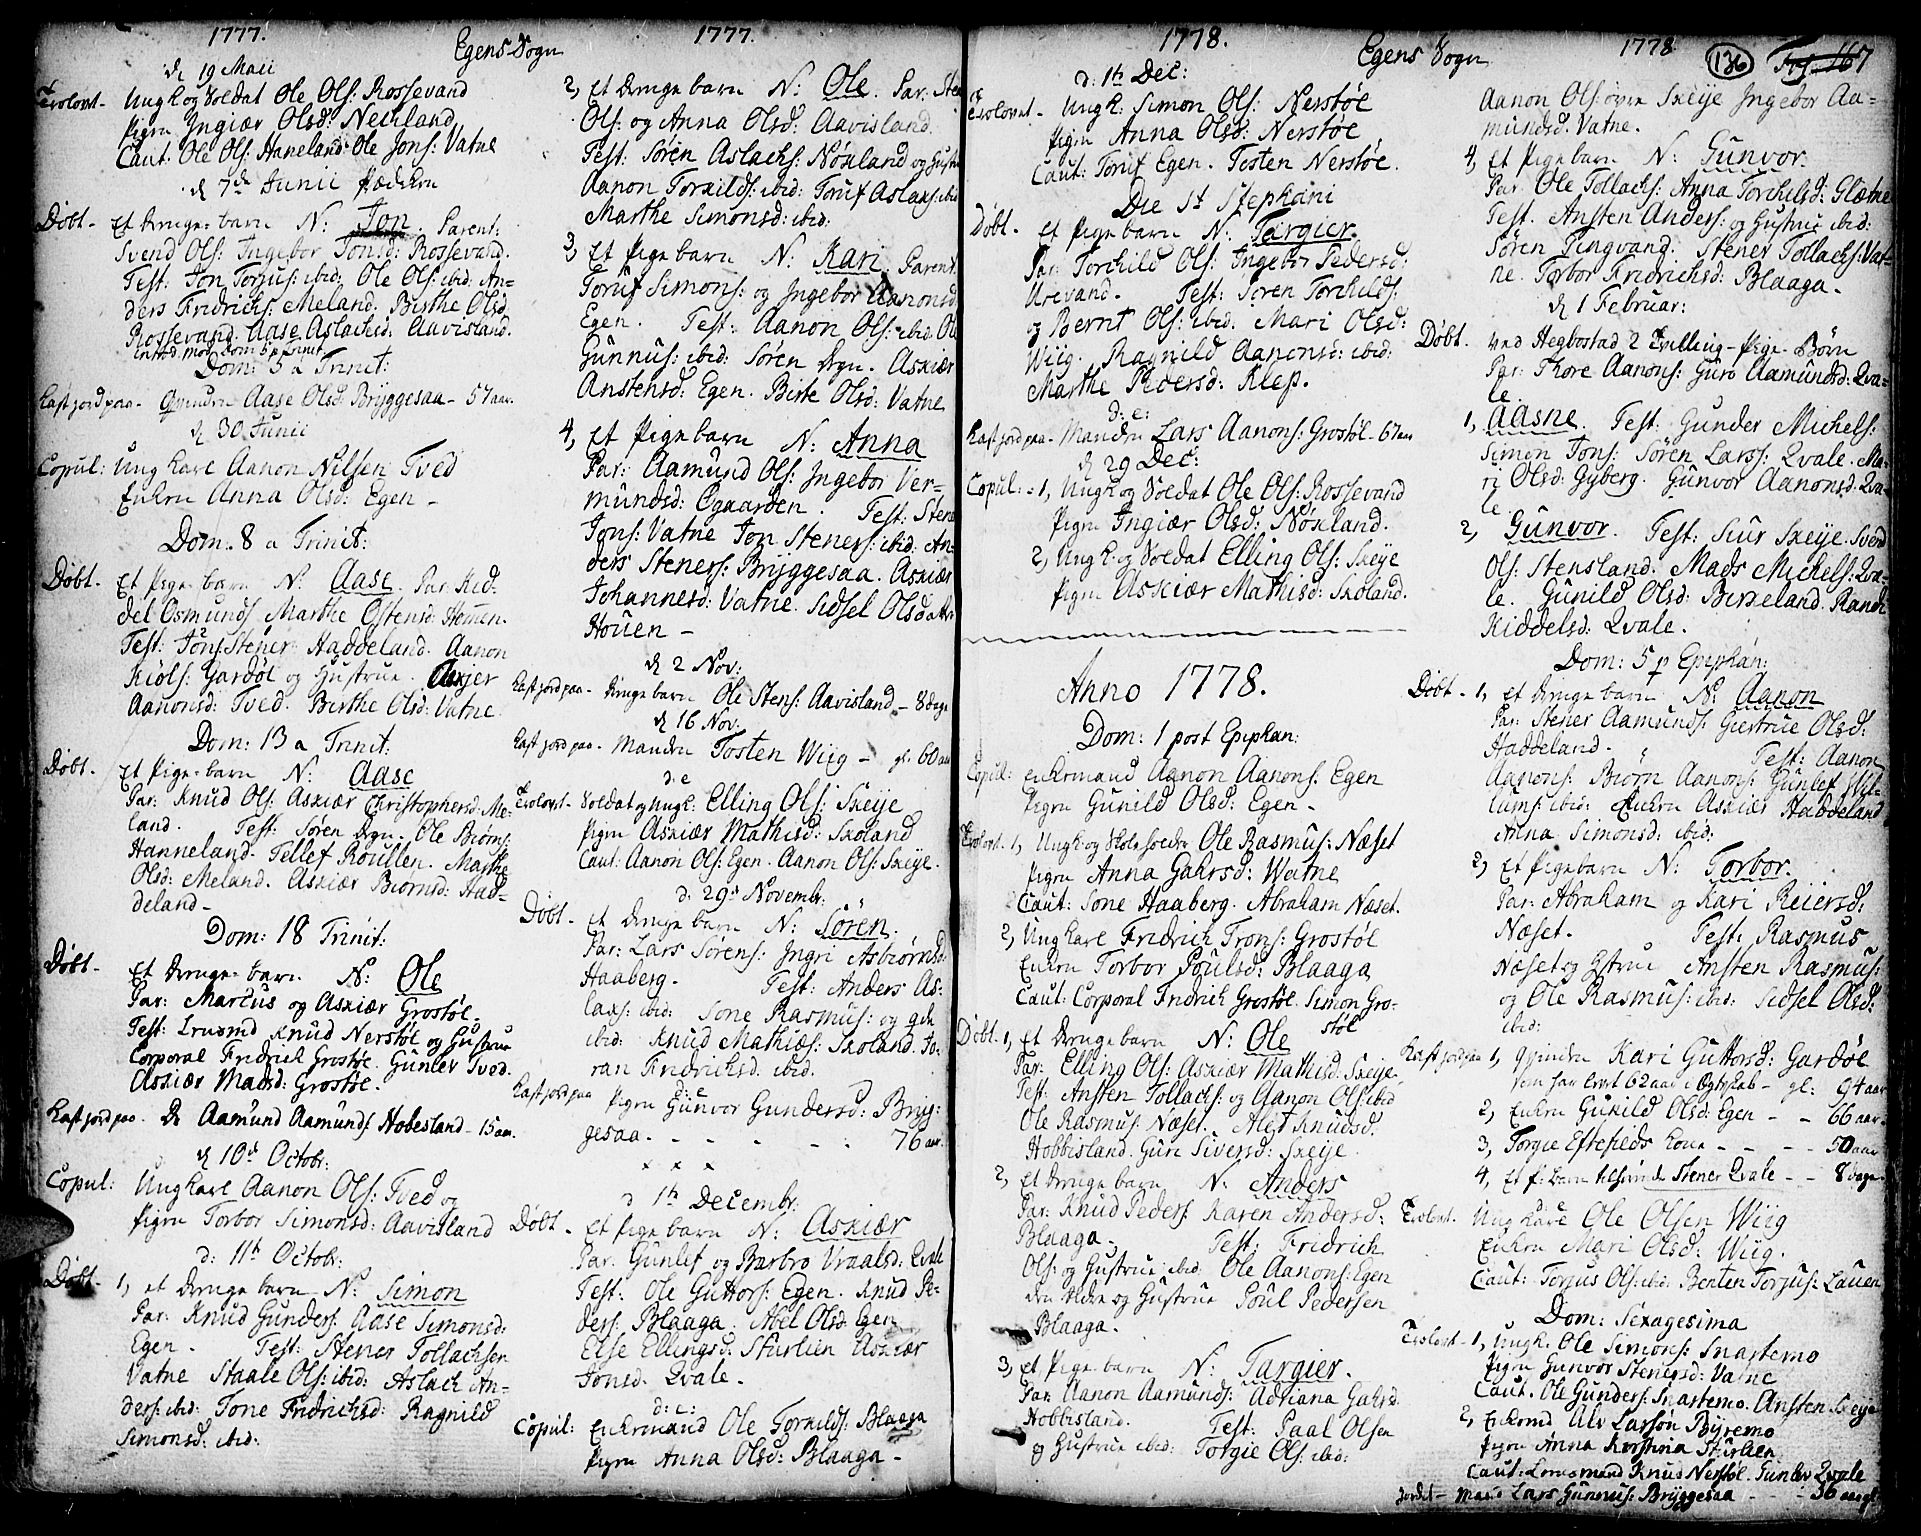 1777.
Egens Sogn
1777.
d. 19 Maii
Trolovt - Ungk og Soldat Ole Ols: Rossevand
Pigen Ingiær Olsd: Neuland
Caut. Ole Ols: Haneland Ole Jons: Vatne
d 7de Junii
Døbt - Et Drenge-barn N: Jon. Parent:
Svend Ols: Ingebor Jonsd: Rossevand.
Test: Jon Torjus: ibid: Ole Ols: ibid: An-
ders Fridrichs: Meland. Birthe Olsd
Rossevand. Aase Aslachsd: Aavisland.
Dom: 5 a Trinit:
Kast jord paa - Qvinden Aase Olsd: Bryggesaa - 57 aar.
d 30 Junii
Copul: Ung karl Aanon Nilsen Tved
Enken Anna Olsd: Egen -
Dom. 8 a Trinit:
Døbt - Et Pige-barn N: Aase. Par: Kid-
del Osmunds Marthe Ostensd:
Test: Jons: Stener Haddeland. Aanon
Kiøls: Gardøl og Hustrue. Asxjer
Aanonsd: Tved. Birthe Olsd: Vatne.
Dom: 13 a Trinit:
Døbt - Et Pige-barn N: Aase
Par: Knud Ols: Asxiær Christophersd: Me-
land. Test: Søren Dgn. Ole Biørns:
Hanneland. Tellef Roullen. Marthe
Olsd: Meland. Asxiær Biørnsd: Had-
deland -
Dom: 18 Trinit:
Døbt - Et Drenge-barn N: Ole
Par: Marcus og Asxiær Grostøl.
Test: Knud Nerstøl og Hustrue
Corporal Fridrich Grostøl. Gunlev Tved.
Asxiær Madsd: Grostøl.
Kast jord paa. Aamund Aamunds Hobesland - 15 aar.
d 10de Octobr:
Copul: Ungkarl Aanon Ols: Tved og
Pigen Torbor Simonsd: Aavisland
d: 11te Octobr:
Døbt - 1, et Drenge barn N: Simon
Par: Knud Gunders: Aase Simonsd:
Egen - Test: Stener Tollachsen
Vatne Staale Ols: ibid: Aslach An-
ders: ibid: Tone Fridrichsd: Ragnild
Simonsd: ibid:
2, Et Drenge barn N: Ole. Par: Sten
Ols: og Anna Olsd: Aavisland.
Test: Søren Aslachs: Nøxland og Hustr
Aanon Torxilds: ibid: Toruf Aslaxs: ibid
Marthe Simonsd: ibid:
3, Et Pige barn N: Kari. Parent:
Toruf Simons: og Ingebor Aanonsd:
Egen. Test: Aanon Ols: ibid: Ole
Gunnus: ibid: Søren Dgn. Asxiær
Anstensd: Egen. Birte Olsd: Vatne
4, Et Pige barn N: Anna
Par: Aamund Ols: Ingebor Ver-
mundsd: Ogaarden. Test: Stener
Jons: Vatne Jon Steners: ibid: An-
ders Steners: Bryggesaa. Asxiær
Johannesd: Vatne. Sidsel Olsd:
Houen -
d 2 Nov:
Kast jord paa - Drenge barn Ole Stens: Aavisland - 8 dage
d 16 Nov:
Kast jord paa - Manden Tosten Wiig - gl. 60 aar
d: e
Trolovt - Soldat og Ungk: Elling Ols: Sxeije
Pigen Asxiær Mathisd: Sxoland
Caut: Aanon Ols: Egen. Aanon Ols: Sxeije.
d. 29de Novembr:
Døbt - Et Drenge barn N: Søren.
Par: Lars Sørens: Ingri Asbiørnsd:
Haaberg. Test: Anders As-
laxs: ibid: Tone Rasmus: og
ibid: Knud Mathias: Sxoland. Jo-
ran Fridrichsd. ibid.
d: e
Kast jord paa Pigen Gunvor Gundersd: Bryg-
gesaa. - - - - 76 aar.
x x x
d 1te Decembr:
Døbt - Et Pige barn N: Asxiær
Par. Gunlef og Barbro Vraalsd: Qvale
Test: Ole Guttors: Egen. Knud Pe-
ders: Blaaga. Abel Olsd: Egen
Else Ellingsd: Sturlien Asxiær
Jonsd: Qvale.
d: e:
Copul: Enkemand Ole Torxilds: Blaaga
Pigen Anna Olsd: Blaaga -
1778.
Egens Sogn
1778
136
167
d: 1te Dec:
Trolovt - Ungk: Simon Ols: Nerstøl
Pigen Anna Olsd: Nerstøl
Caut: Toruf Egen. Tosten Nerstøl.
Die St Stephani
Døbt - Et Pige barn N: Targier.
Par: Torchild Ols: Ingebor Pedersd:
Urevand. Test: Søren Torchilds:
og Bernt Ols: ibid. Mari Olsd:
Wiig. Ragnild Aanonsd: ibid:
Marthe Pedersd: Klep.
d: e:
Kast jord paa - Manden Lars Aanons: Grostøl - 67 aar
d 29 Dec:
Copul: - 1, Ungk og Soldat Ole Ols: Rossevand
Pigen Ingiær Olsd: Nøxland.
2, Ungk: og Soldat Elling Ols: Sxeije
Pigen Asxiær Mathisd: Sxoland.
Anno 1778.
Dom: 1 post Epiphan:
Copul: Enkemand Aanon Aanons: Egen
Pigen Gunild Olsd: Egen -
Trolovt. 1, Ungk og Skoleholder Ole Rasmus: Næset
Pigen Anna Gahrsd: Watne
Caut: Tone Haaberg. Abraham Næset.
2, Ung karl Fridrich Trons: Grostøl
Enken Torbor Poulsd: Blaaga
Caut: Corporal Fridrich Grostøl. Simon Gro-
støl
Døbt. 1, Et Drenge barn N: Ole
Par: Elling Ols: Asxiær Mathisd: Sxeije
Test: Ansten Tollachs: og Aanon Ols: ibid
Ole Rasmus: Næset. Alet Knudsd.
Hobbisland. Guri Siversd: Sxeije
2, Et Drenge barn N: Anders
Par: Knud Peders: Karen Andersd:
Blaaga. Test: Fridrich
Ols: og Hustrue ibid: Ole Aanons: Egen
den Ældre og Hustrue Poul Pedersen
Blaaga.
3, Et Pige barn N: Targier.
Par: Aanon Aamunds: Adriana Gahrsd
Hobbisland. Test: Paal Olsen
og Hustrue ibid: Torgie Ols: ibid:
Aanon Ols: øvre Sxeije Ingebor Aa-
mundsd. Vatne.
4, Et Pige barn N: Gunvor
Par: Ole Tollachs: Anna Torchilsd: Glætne
Test. Ansten Anders: og Hustrue ibid:
Søren Tingvand. Stener Tollachs: Vat-
ne. Torbor Fridrichsd: Blaaga -
d 1 Februar:
Døbt. ved Hegbostad 2 Tvilling-Pige-Børn
Par: Thore Aanons: Guro Aamundsd: Qva-
le.
1, Aasne. Test: Gunder Michels:
Simon Jons: Søren Larss: Qvale. Ma-
ri Olsd: Gyberg. Gunvor Aanonsd: Qva-
le
2, Gunvor. Test: Siur Sxeije. Svend
Ols: Stensland. Mads Michels: Qva-
le. Gunild Olsd: Birkeland. Randi
Kiddelsd: Qvale.
Dom: 5 p Epiphan:
Døbt - 1, Et Drenge barn N: Aanon
Par: Stener Aamunds: Giertrue Olsd:
Haddeland. Test: Aanon
Aanons: Biørn Aanons: Gunlef Wil-
lums: ibid: Enken Asxiær Haddeland
Anna Simonsd: ibid:
2, Et Pige barn N: Torbor.
Par: Abraham og Kari Reiersd:
Næset. Test: Rasmus
Næset og Hstrue Ansten Rasmus:
og Ole Rasmus: ibid: Sidsel Olsd:
ibid:
Kast jord paa 1, Qvinden Kari Guttorsd: Gardøl
som har levet 62 aar i Ægteskab - gl: 94 aar
2, Enken Gunild Olsd: Egen - - 66 aar.
3, Torgie Eftestøls kone - - - 50 aar
4, Et P: barn Stener Qvale - - 8 dage.
d: e
Trolovt. Ung karl Ole Olsen Wiig
Enken Mari Olsd: Wiig.
Caut: Torjus Ols: ibid. Benten Torjus: Lauen
Dom: Sexagesima
Trolovt - 1, Ungk. Ole Simons: Snartemo
Pigen Gunvor Stenersd: Vatne
Caut. Ole Gunders: Snartemo. Ansten Sxeije
2, Enkemd Alv Larsøn Byremo
Pigen Anna Kirstina Sturlien
Caut: Knud Nerstøl. Gunlev Qvale
Jordet - Mand Lars Gunnus: Bryggesaa - - 36 aar gl